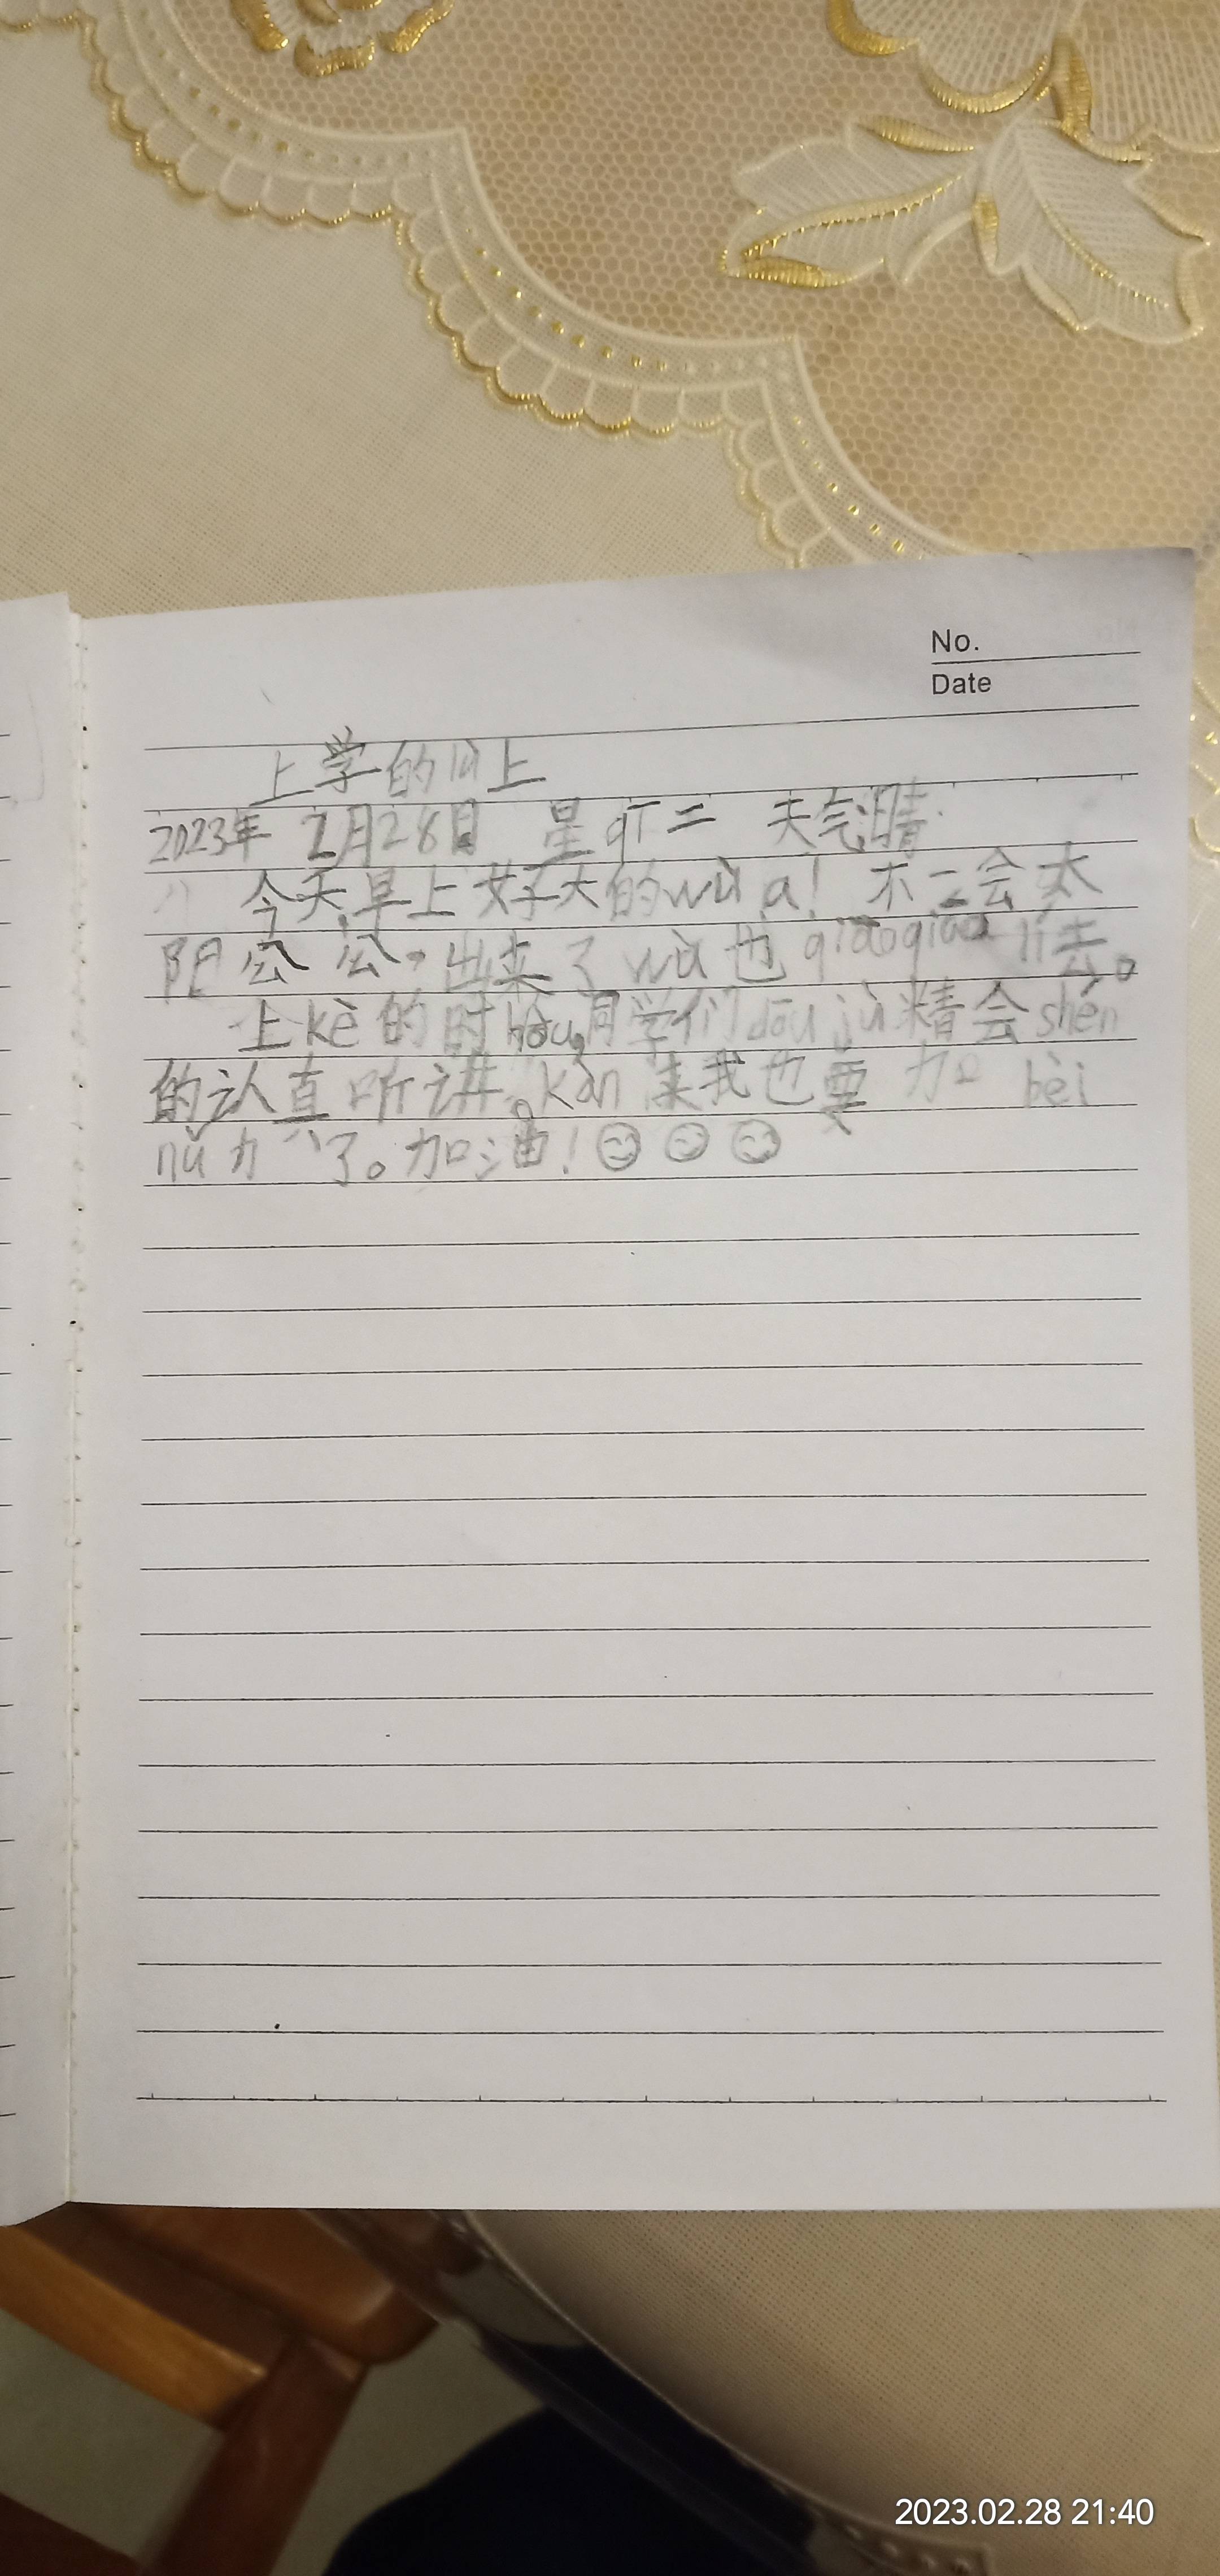 No.
Date
上学的lù上
2023年 2月28日 星qī二 天气晴
今天早上好大的wù a! 不一会太
阳公公,出来了wù也qiāoqiāo lí去。
上kè的时hòu,同学们dōu jù精会shén
的认真听讲。kàn来我也要加bèi
nǔ力了。加油!
2023.02.28 21:40